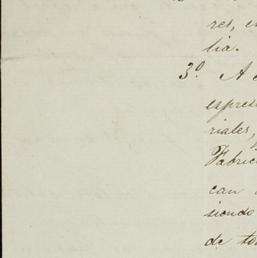 res, e
lia.
3º A c
expres
riales,
Fabric
can
siondo
de to